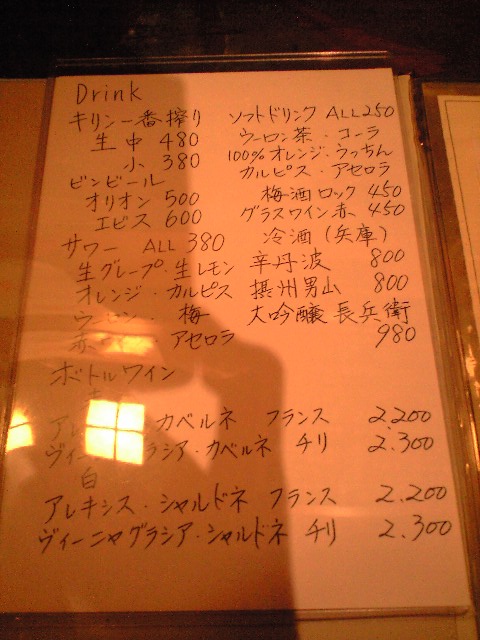 Drink
キリン一番搾り
生 中 480
小 380
ビンビール
オリオン 500
エビス 600
サワー ALL 380
生グレープ・生レモン
オレンジ・カルピス
梅
アセロラ
ソフトドリンク ALL250
ウーロン茶・コーラ
100%オレンジ・うっちん
カルピス・アセロラ
梅酒ロック 450
グラスワイン赤 450
冷酒(兵庫)
辛丹波 800
摂州男山 800
大吟醸 長兵衛
980
ボトルワイン
カベルネ フランス 2.200
ラシア・カベルネ チリ 2.300
白
アレキシス・シャルドネ フランス 2.200
ヴィーニャグラシア・シャルドネ チリ 2.300